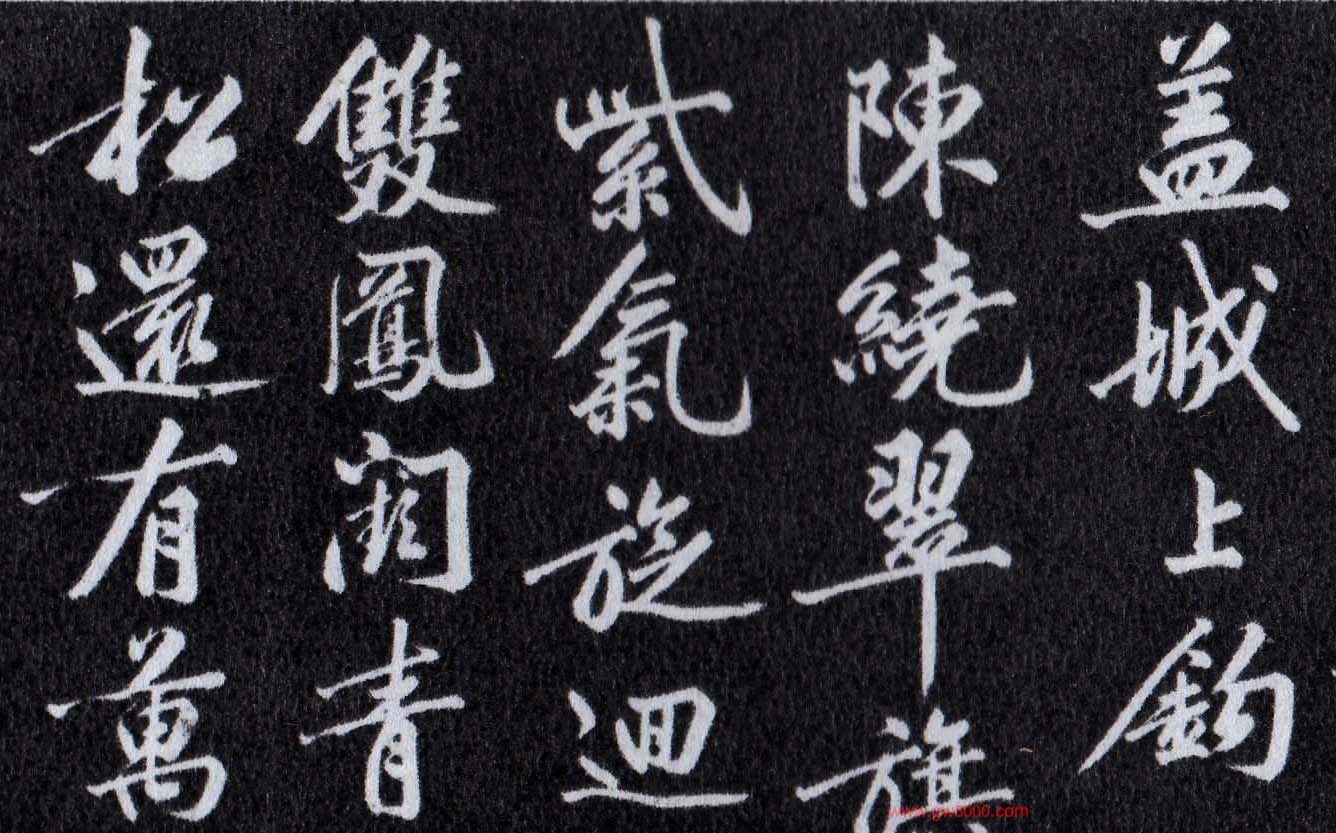 盖城上鈎
陳繞翠旗
紫氣旋迴
雙鳳闕青
松還有萬
www.gw8000.com